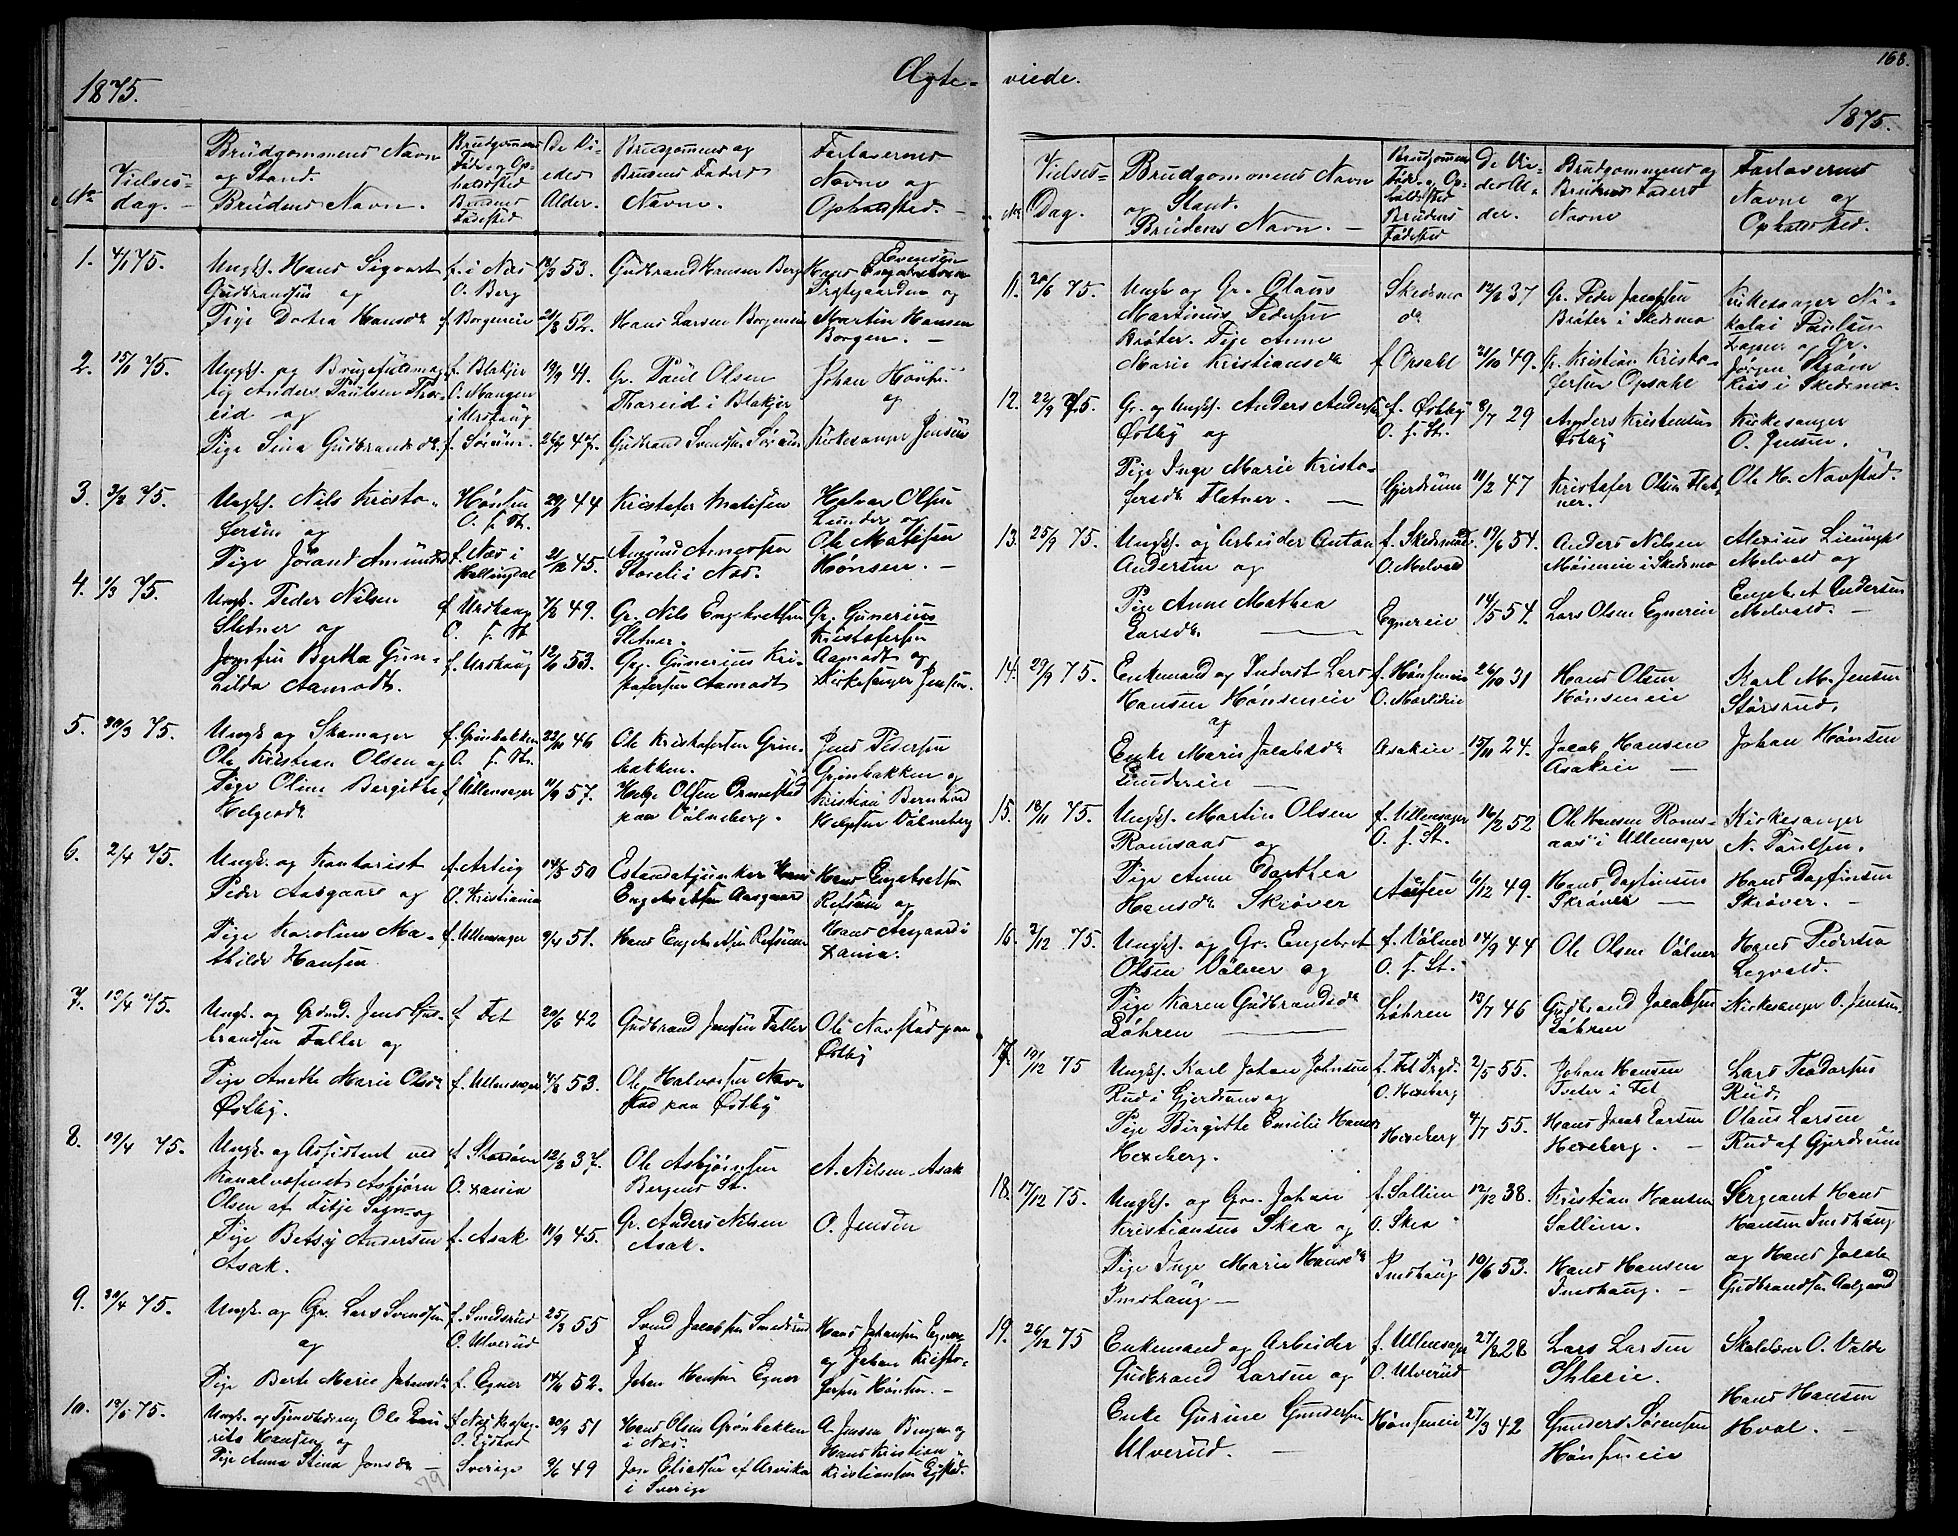 1875.
Ægte-
viede.
168.
1875.
No
Vielses-
dag.
Brudgommens Navn
og Stand.
Brudens Navn.
Brudgommens
Føde og Op-
holdssted
Brudens
Fødested
De Vi-
edes
Alder.
Brudgommens og
Brudens Faders
Navne.
Forlovernes
Navne og
Opholdssted.
1. 4/1 75.
Ungk. Hans Sigvart
Gudbrandsen og
Pige Dortea Hansdr
f. i Næs
O. Berg
f. Borgeneie
53.
52.
Gudbrand Hansen Berg
Hans Larsen Borgeneie
Hans Evensen
og
Martin Hansen
Borgen.
2. 15/1 75.
Ungk. og
Anders Paulsen Tho-
reid og
Pige Sina Gudbrandsdr
f. Blakjer
O. Mangen
i Urskoug
f. Sørum.
19/9 49.
47.
Gr. Paul Olsen
Thoreid i Blakjer
Gudbrand Svendsen
Johan
og
Kirkesanger Jensen
3. 75.
Ungk. Nils Kristo-
fersen og
Pige Jørand Amundsd
Hønsen
O. f. St.
f. Næs i
Hallingdal
44
45.
Kristofer Matisen
Amund Arnesen
i Næs.
Halvor Olsen
Lunder og
Ole Matisen
Hønsen.
4. 75.
Ungk. Peder Nilsen
Sletner og
Jomfru Berthe Gun-
hilda Aamodt.
f. Urskoug
O. f. St.
f. Urskoug
49.
53.
Gr. Nils Engebretsen
Sletner.
Gr. Gunerius Kri-
stofersen Aamodt
Gr. Gunerius
Kristofersen
Aamodt og
Kirkesanger Jensen.
5. 30/3 75.
Ungk og Skomager
Ole Kristian Olsen og
Pige Oline Bergitte
Helgesdr
f. Grinbakken
O. f. St.
f. Ullensager
22/10 46
57.
Ole Kristofersen Grin-
bakken.
Helge Olsen
paa Vølneberg.
Jens Pedersen
Grinbakken og
Kristian Bernhard
Helgesen Vølneberg
6. 2/4 75.
Ungk. og Kontorist
Peder Aasgaard og
Pige Karoline Ma-
thilde Hansen.
O. Kristiania
f. Ullensager
14/5 50
9/4 51.
Hans
Engebretsen Aasgaard
Hans Engebretsen Refsum
Hans Engebretsen
Refsum og
Hans Aasgaard i
Xania.
7. 75.
Ungk. og Grdmd. Jens Gud-
brandsen Faller og
Pige Anethe Marie Olsdr
Østby.
f. Fet
f. Ullensager
20/6 42
53.
Gudbrand Jensen Faller
Ole Halvorsen Nav-
stad paa Østby
Ole Navstad paa
Østby
8. 19/4 75.
Ungk. og Assistent ved
Kanalvæsenet Asbjørn
Olsen af og
Pige Betsy Andersen
Asak.
O. Xania
f. Asak
37.
11/9 45.
Ole Asbjørnsen
Bergens St.
Gr. Anders Nilsen
Asak.
A. Nilsen Asak
O. Jensen
9. 30/4 75.
Ungk. og Gr. Lars Svendsen
og
Pige Berte Marie Johansdr
f. Smedsrud
O. Ulverud
f. Egner
25/3 55
52.
Svend Jacobsen Smedsrud
Johan Hansen Egner
Hans Johansen Egner
og Johan Kristo-
fersen Hønsen.
10. 75.
Ungk. og Ole
Hansen og
Pige Anna Stina Jonsdr
f. Næs
O.
Sverige
20/9 51
9/6 49
Hans Olsen Grønbakken
i Næs.
Jon Eliassen af Arvika
i Sverige
A. Jensen og
Hans Kristian
Kristiansen
79
No
Vielses-
Dag.
Brudgommens Navn
og Stand.
Brudens Navn.
Brudgommens
Føde og Op-
holdssted
Brudens
Fødested
De Vie-
des Al-
der.
Brudgommens og
Brudens Faders
Navne
Forlovernes
Navne og
Opholdssted.
11. 20/6 75.
Ungk og Gr. Olaus
Martinus Pedersen
Brøter. Pige Anne
Marie Kristiansdr
Skedsmo
do
f. Opsahl
12/6 37
21/10 49.
Gr. Peder Jacobsen
Brøter i Skedsmo
Gr. Kristian Kristo-
fersen Opsahl
Kirkesanger Ni-
kolai Paulsen
og Gr.
Jørgen
i Skedsmo.
12. 22/9 75.
Gr. og Ungk. Anders Andersen
Østby og
Pige Inge Marie Kristo-
fersdr Flatner.
f. Østby
O. f. St.
Gjerdrum
8/7 29
11/2 47
Anders Kristensen
Østby
Kristofer Olsen Flat-
ner.
Kirkesanger
O. Jensen.
Ole H. Navstad.
13. 25/9 75.
Ungk. og Arbeider Anton
Andersen og
Pige Anne Mathea
Larsdr
f. Skedsmo
O. Melvold
Egnereie
19/6 54.
14/5 54.
Anders Nilsen
i Skedsmo
Lars Olsen Egnereie
Alexius
Melvold og
Engebret Andersen
Melvold.
14. 29/9 75.
Enkemand og Inderst Lars
Hansen Hønseneie
og
Enke Marie Jakobsdr
Lundereie
f. Hønseneie
Asakeie
26/10 31
15/10 24.
Hans Olsen
Hønseneie
Jacob Hansen
Asakeie
Karl M. Jensen
Storsrud,
Johan Hønsen
15. 18/11 75.
Ungk. Martin Olsen
Romsaas og
Pige Anne Dorthea
Hansdr Skrøver
f. Ullensager
O. f. St.
16/2 52
6/12 49.
Ole Hansen Roms-
aas i Ullensager
Hans Dagfinsen
Skrøver
Kirkesanger
N. Paulsen.
Hans Dagfinsen
Skrøver.
16. 2/12 75.
Ungk. og Gr. Engebret
Olsen Vølner og
Pige Karen Gudbrandsdr
Løhren
f. Vølner
O. f. St.
Løhren
14/9 44
13/7 46
Ole Olsen Vølner
Gudbrand Jacobsen
Løhren
Hans Pedersen
Legvold.
Kirkesanger O. Jensen.
17. 10/12 75
Ungk. Karl Johan Johnsen
Rud i Gjerdrum og
Pige Birgitte Emilie Hansdr
Hexeberg.
f. Fet Prgd.
O. Hexeberg
Hexeberg
2/5 55.
4/7 55.
Johan Hansen
Tveter i Fet
Hans Jacob Larsen
Hexeberg.
Lars Teodorsen
Rud,
Olaus Larsen
Rud af Gjerdrum
18. 17/12 75.
Ungk. og Gr. Johan
Kristiansen Skea og
Pige Inge Marie Hansdr
Imshaug
f. Sollien
O. Skea
Imshaug
12/12 38.
10/6 53.
Kristian Hansen
Sollien.
Hans Hansen
Imshaug.
Sergeant Hans
Hansen Imshaug
og Hans Jacob
Gudbrandsen Aalgaard
19. 26/12 75
Enkemand og Arbeider
Gudbrand Larsen og
Enke Gurine Gundersen
Ulverud.
f. Ullensager
O. Ulverud
Hønseneie
28
27/3 42
Lars Larsen
Gunder Sørensen
Hønseneie
Skolelærer O. Volde
Hans Hansen
Hval.